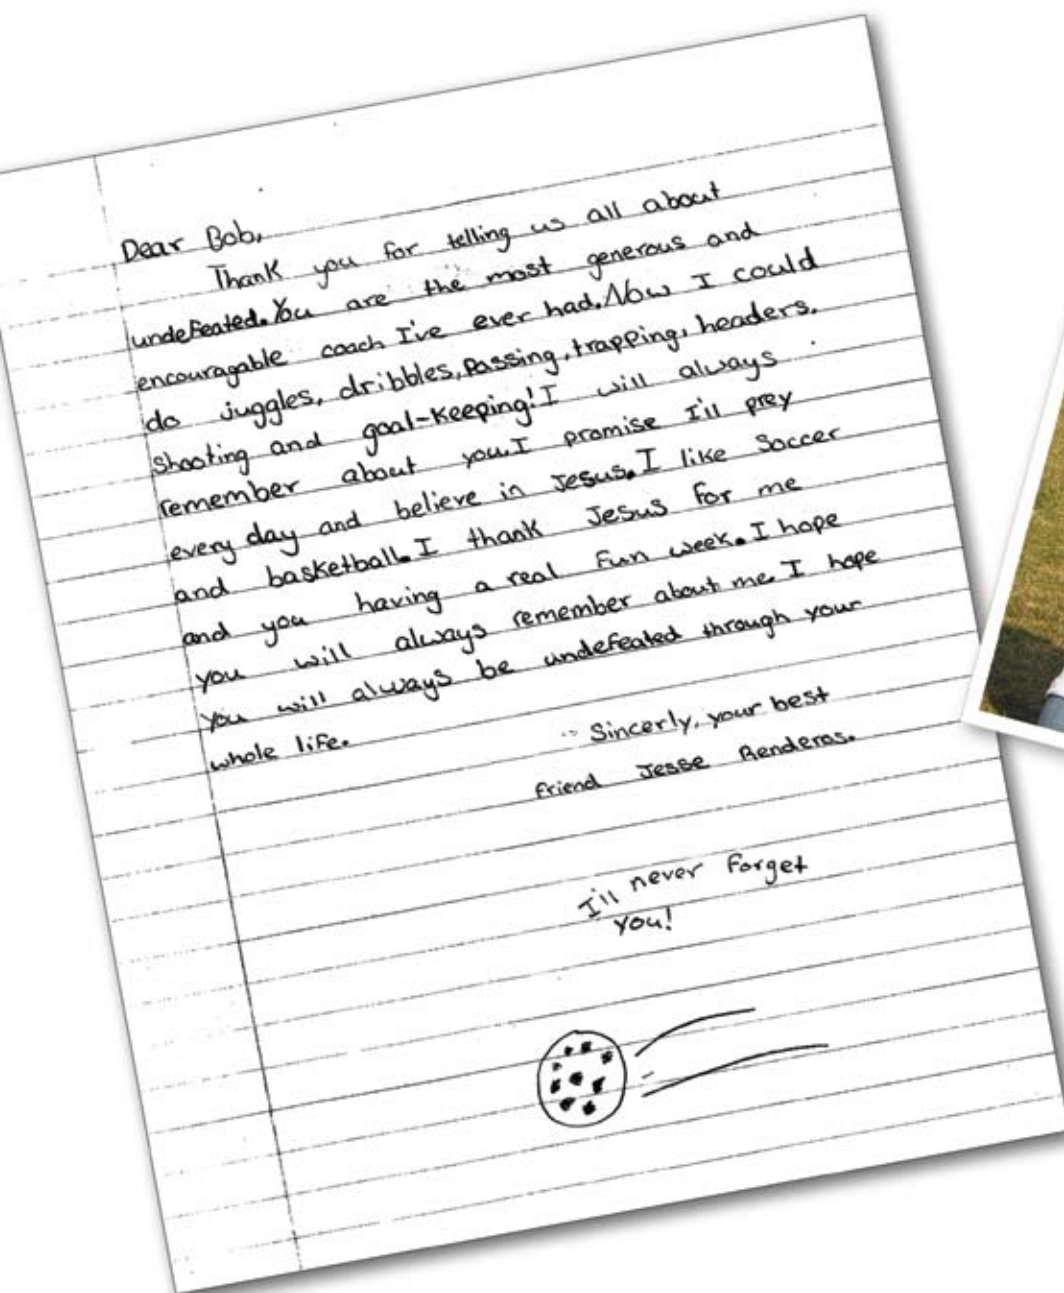 Dear Bob,
Thank you for telling us all about
undefeated. You are the most generous and
encouragable coach I've ever had. Now I could
do juggles, dribbles, passing, trapping, headers,
shooting and goal-keeping! I will always
remember about you. I promise I'll prey
every day and believe in Jesus. I like Soccer
and basketball. I thank Jesus for me
and you having a real fun week. I hope
you will always remember about me. I hope
you will always be undefeated through your
whole life.
Sincerly, your best
friend Jesse Renderos.
I'll never forget
you!